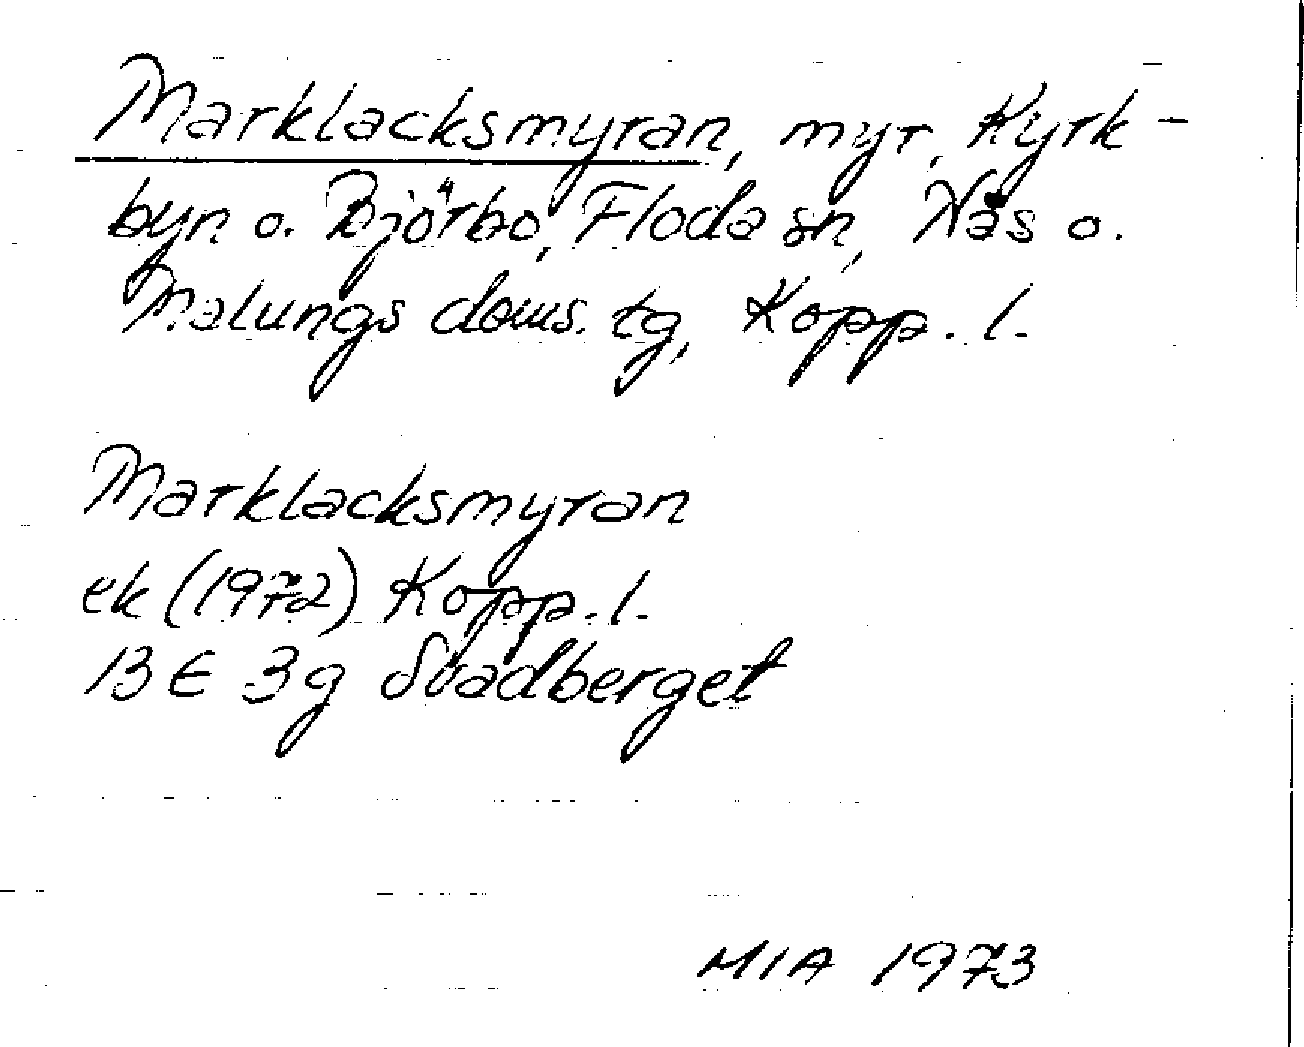 Marklacksmyran, myr, Kyrk-
byn o. Björbo, Floda sn, Näs o.
Malungs doms. tg, Kopp. l.
Marklacksmyran
ek (1972) Kopp. l.
13 E 3g Svadberget
MIA 1973